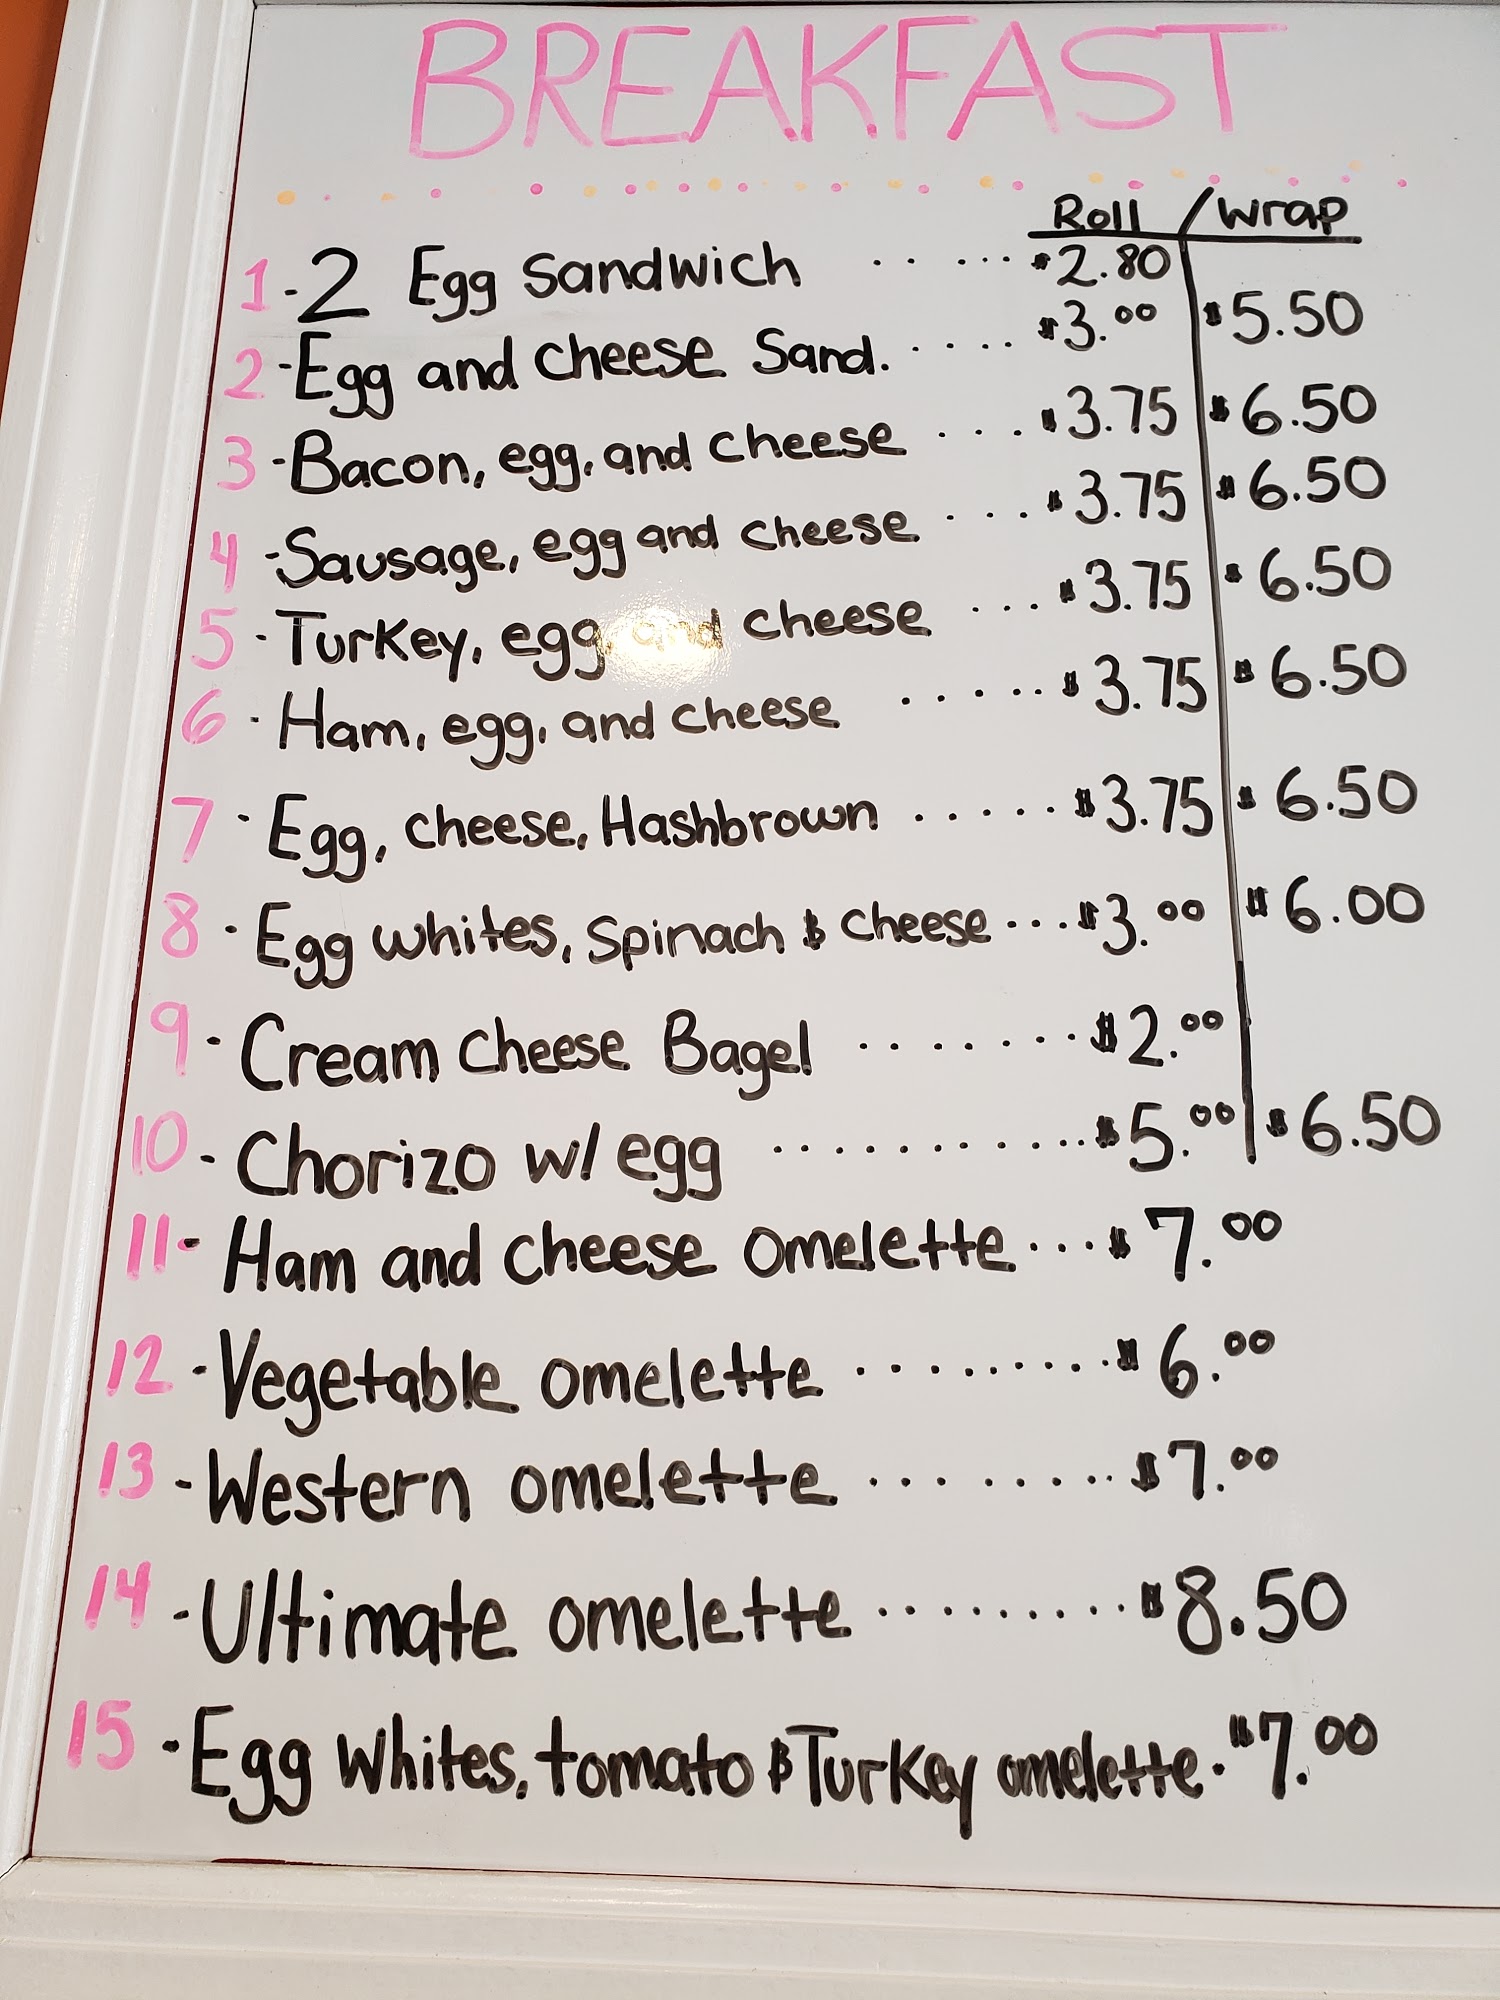 BREAKFAST
Roll / Wrap
1-2 Egg Sandwich .. ... $2.80
2-Egg and Cheese Sand. .... $3.00 $5.50
3-Bacon, egg, and Cheese .... $3.75 $6.50
4-Sausage, egg and cheese .... $3.75 $6.50
5-Turkey, egg, and cheese .... $3.75 $6.50
6-Ham, egg, and cheese ..... $3.75 $6.50
7-Egg, cheese, Hashbrown ..... $3.75 $6.50
8-Egg whites, Spinach & Cheese ... $3.00 $6.00
9-Cream Cheese Bagel ........ $2.00
10-Chorizo w/ egg ........... $5.00 $6.50
11-Ham and cheese omelette ... $7.00
12-Vegetable omelette ......... $6.00
13-Western omelette ........ $7.00
14-Ultimate omelette ......... $8.50
15-Egg Whites, tomato & Turkey omelette. $7.00